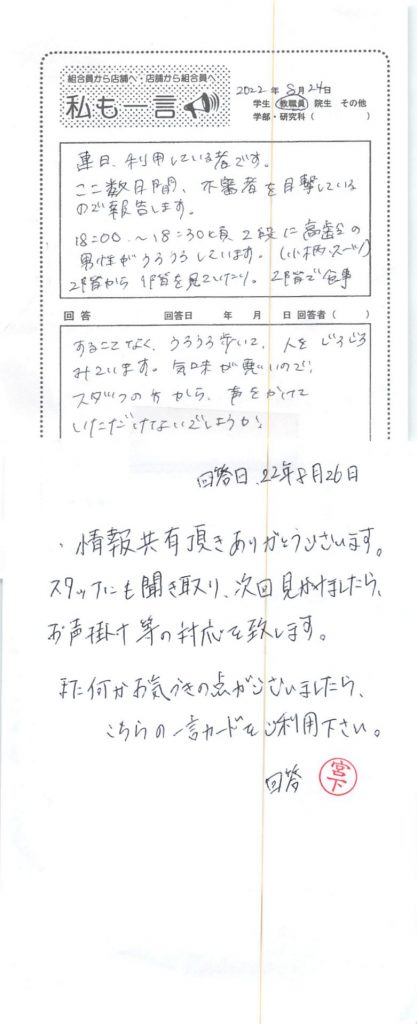 組合員から店舗へ・店舗から組合員へ
私も一言
2022年 8月24日
学生 教職員 院生 その他
学部・研究科( )
連日、利用している者です。
ここ数日間、不審者を目撃している
ので報告します。
18:00〜18:30頃 2段に高齢の
男性がうろうろしています。(小柄・スーツ)
2階から1階を見ていたり。2階で食事
回答 回答日 年 月 日 回答者( )
することなく、うろうろ歩いて、人をじろじろ
みています。気味が悪いので、
スタッフの方から、声をかけて
いただけないでしょうか?
回答日、22年8月26日
・情報共有頂きありがとうございます。
スタッフにも聞き取り、次回見かけましたら、
お声掛け等の対応を致します。
また何かお気づきの点がございましたら、
こちらの一言カードをご利用下さい。
回答 宮下